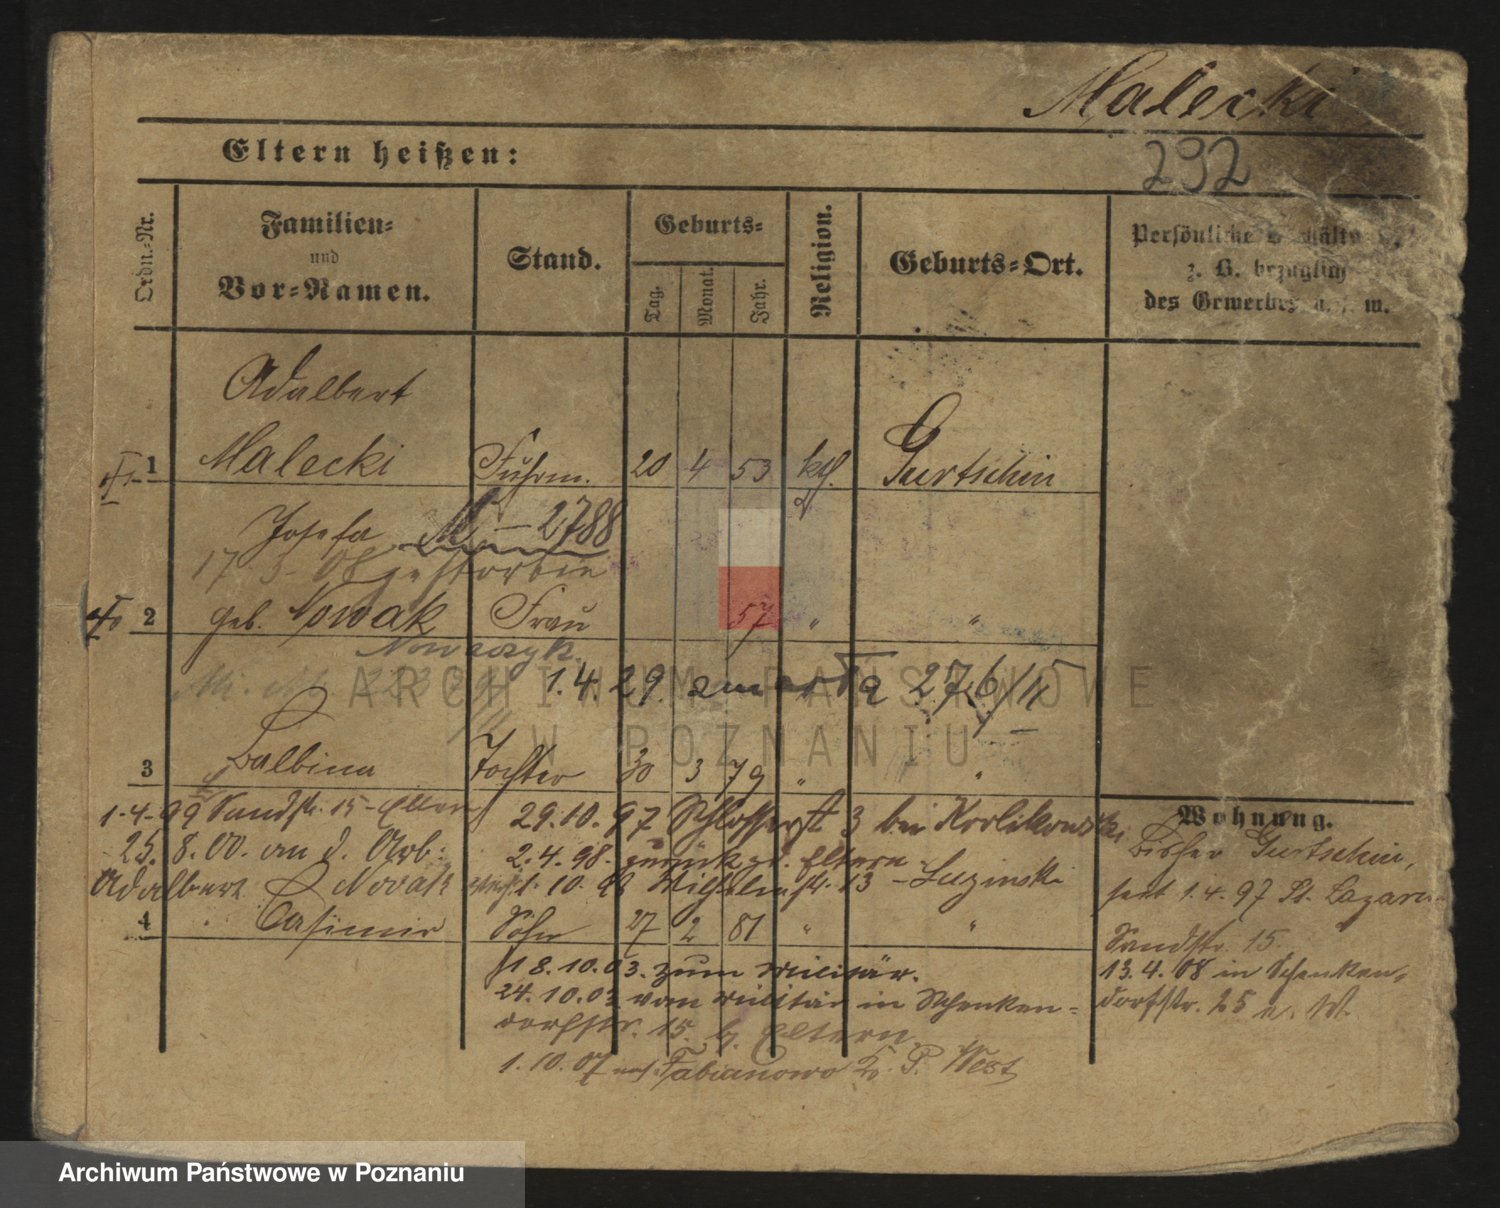 Malecki
Eltern heißen:
292
Ordn.-Nr.
Familien-
und
Vor-Namen.
Stand.
Geburts-
Tag.
Monat.
Jahr.
Religion.
Geburts-Ort.
Persönliche
z. B. bezüglich
des Gewerbes u. s. w.
Adalbert
1 Malecki Fuhrm. 20 4 53 kth. Gurtschin
Josefa M. – 2788
17 3 – 08 gestorben
2 geb. Nowak Frau 57 " "
Nowaczyk
1.4.29. zmarła 27/6/
3 Balbina Tochter 30 3 79 " "
1.4.99 Sandstr. 15 – Eltern 29.10.97 Schlosserst. 3 bei Krolikowski
25.8.00. an d. Arb. 2.4.98. zurück zd. Eltern
Adalbert Novak 1.10. Wilhelmstr. 13 – Luzinski
4 Casimir Sohn 27 2 81 " "
18.10.03. zum Militär.
24.10.03 vom Militär in Schenken-
dorfstr. 15. b. Eltern.
1.10.07 nach Fabianowo Kr. P. West
Wohnung.
Bisher Gurtschin,
seit 1.4.97 St. Lazarus
Sandstr. 15.
13.4.08 in Schenken-
dorfstr. 25 n. W.
ARCHIWUM PAŃSTWOWE
W POZNANIU
Archiwum Państwowe w Poznaniu